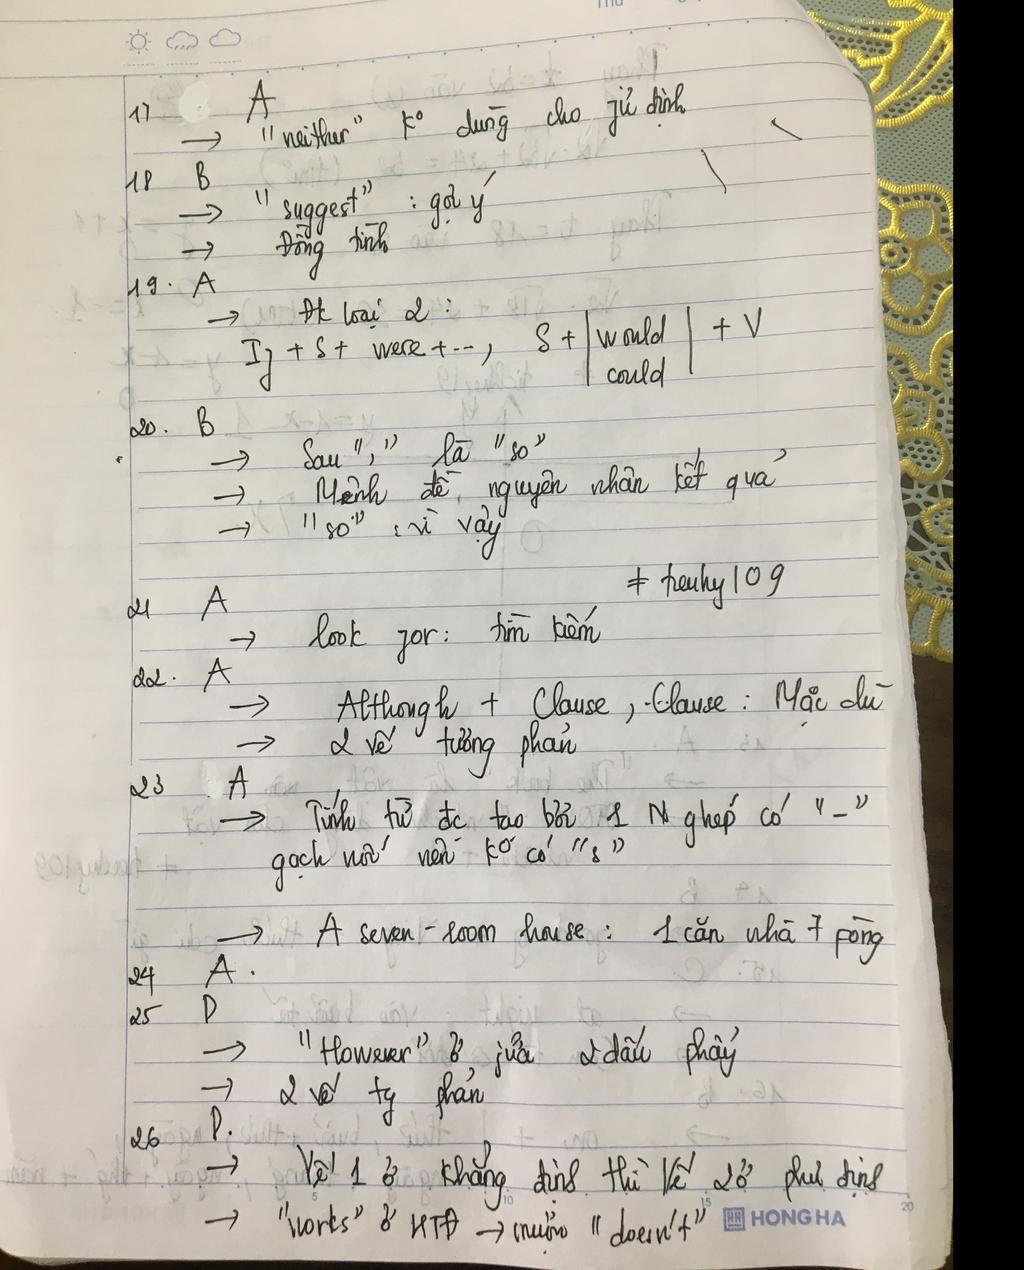 17 A
→ "neither" ko dùng cho jử định
18 B
→ "suggest" : gợi ý
→ Đồng tình
19. A
→ Đk loại 2 :
If + S + were + ..., S + | would | + V
could
20. B
→ Sau "," là "so"
→ Mệnh đề nguyên nhân kết quả
→ "so" : vì vậy
# tieuhy109
21 A
→ look for: tìm kiếm
22. A
→ Although + Clause, Clause : Mặc dù
→ 2 vế tương phản
23 A
→ Tính từ đc tạo bởi 1 N ghép có "-"
gạch nối nên ko có "s"
→ A seven-room house: 1 căn nhà 7 pòng
24 A.
25 D
→ "However" ở jữa 2 dấu phẩy
→ 2 vế tg phản
26 D.
→ Vế 1 ở khẳng định thì Vế 2 ở phủ định
→ "works" ở HTĐ → mượn "doesn't"
HONG HA